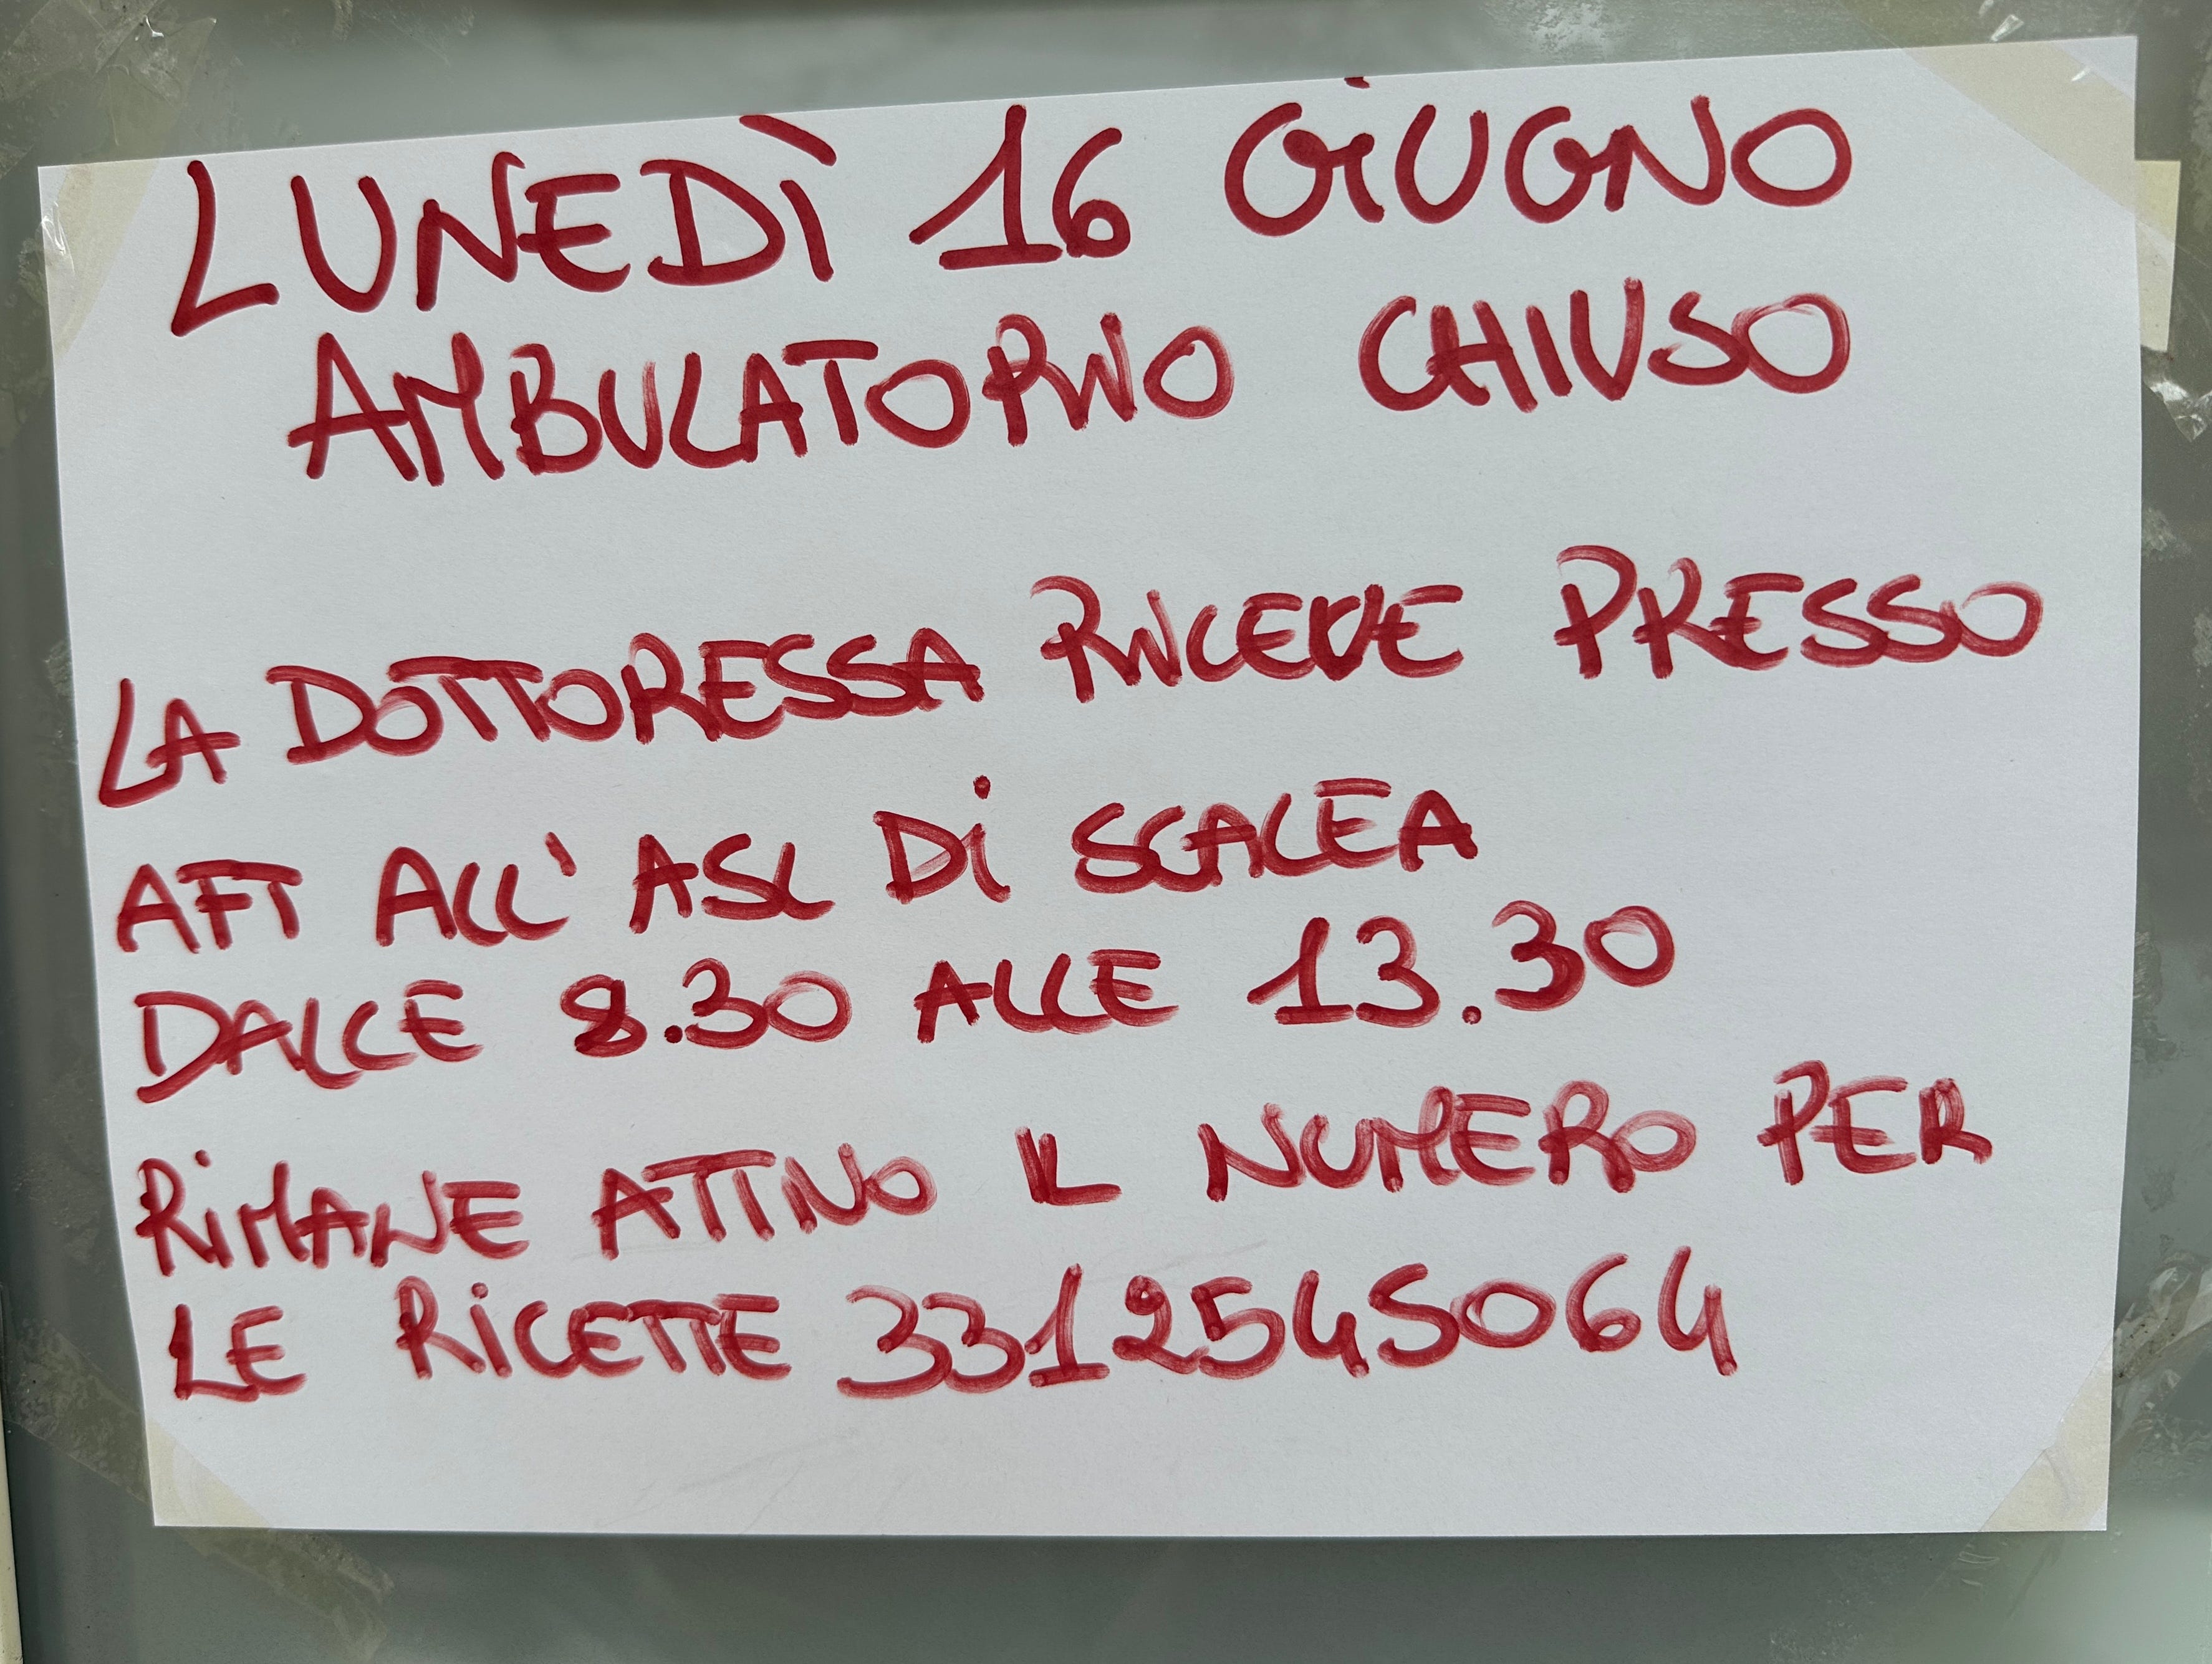 LUNEDÌ 16 GIUGNO
AMBULATORIO CHIUSO
LA DOTTORESSA RICEVE PRESSO
AFT ALL'ASL DI SCALEA
DALLE 8.30 ALLE 13.30
RIMANE ATTIVO IL NUMERO PER
LE RICETTE 3312545064